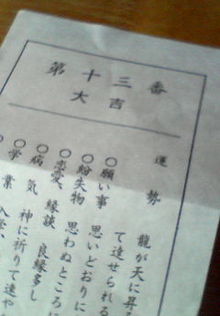 第十三番
大吉
運勢 龍が天に昇る
て達せられる
○願い事 思いどおりに
○紛失物 思わぬところに
○恋愛、縁談 良縁多し
○病気 神に祈りて速や
○学業 入学、